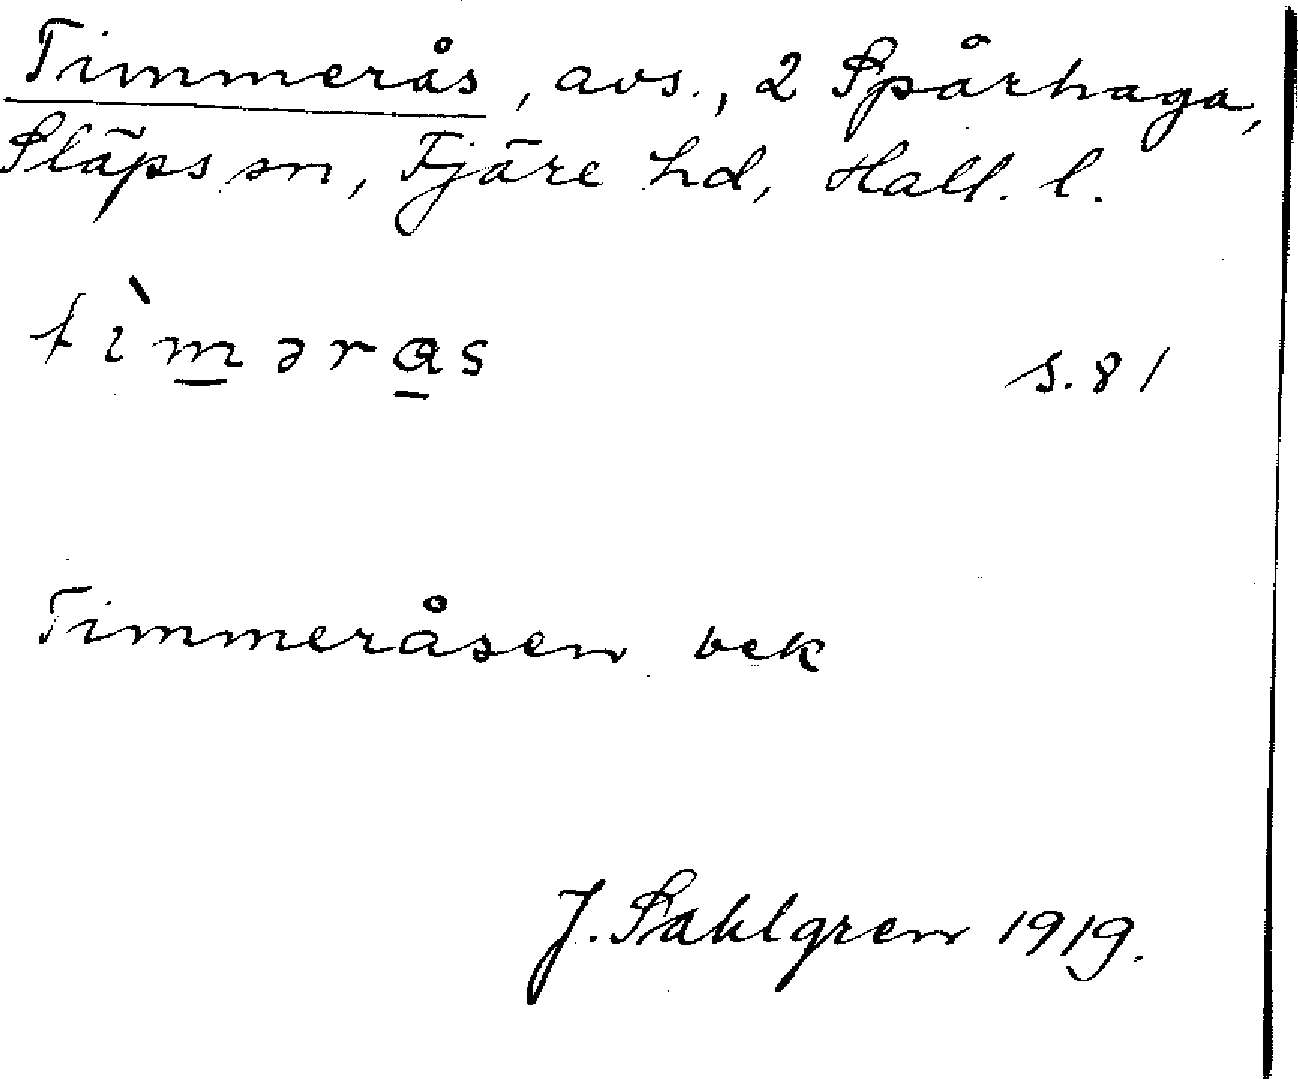 Timmerås, avs., 2 Spårhaga,
Släps sn, Fjäre hd, Hall. l.
tìməras
s. 81
Timmeråsen bek
J. Sahlgren 1919.